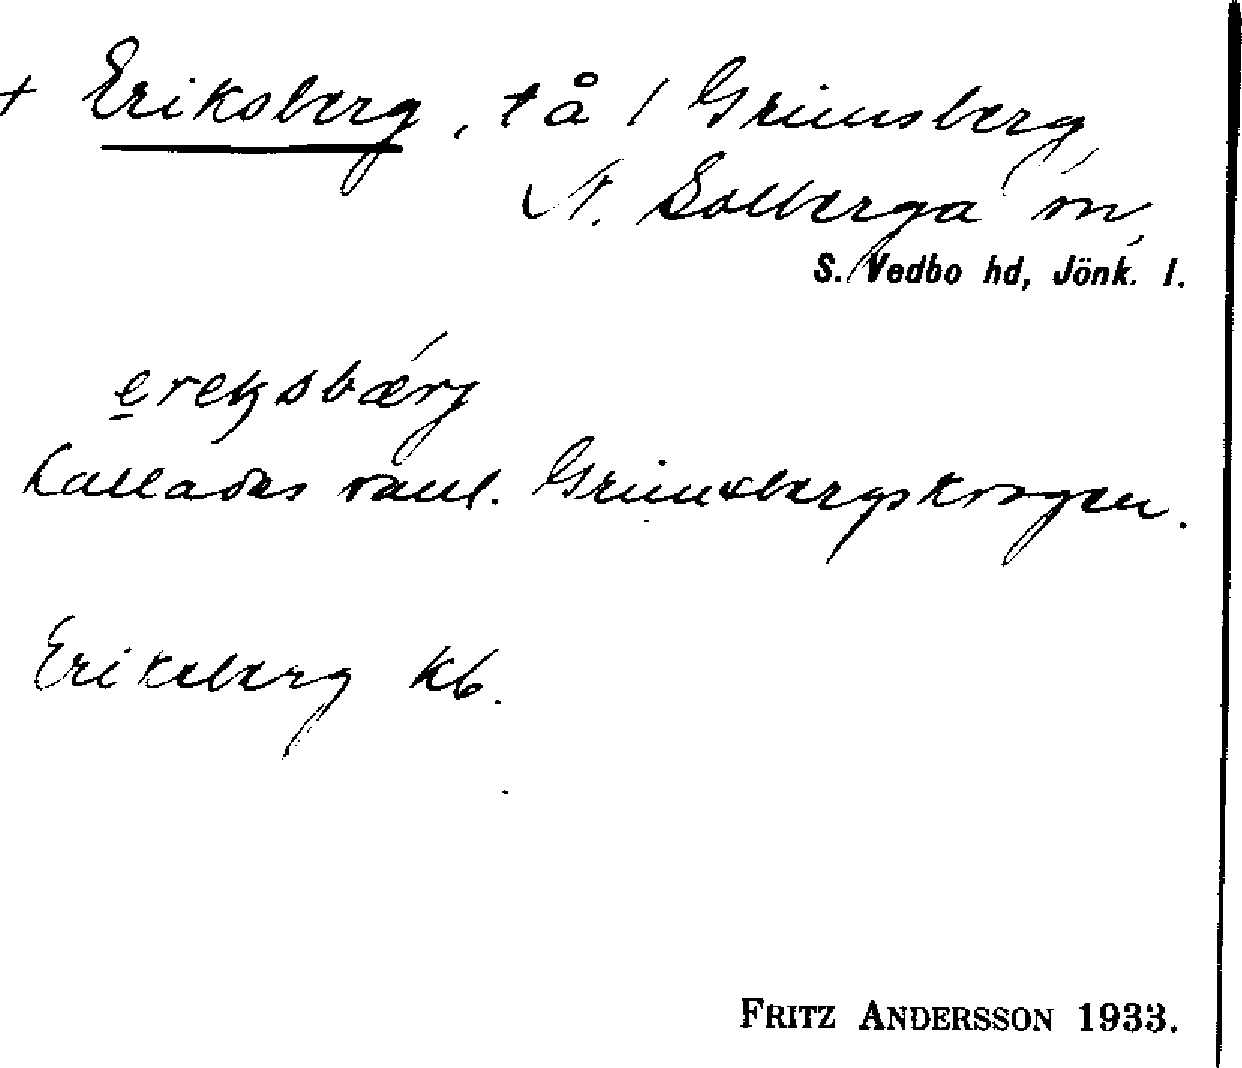 + Eriksberg, tå / Grimsberg,
N. Solberga sn,
S. Vedbo hd, Jönk. l.
ereksbærj
Kallades vanl. Grimsbergskrogen.
Eriksberg kb.
FRITZ ANDERSSON 1933.